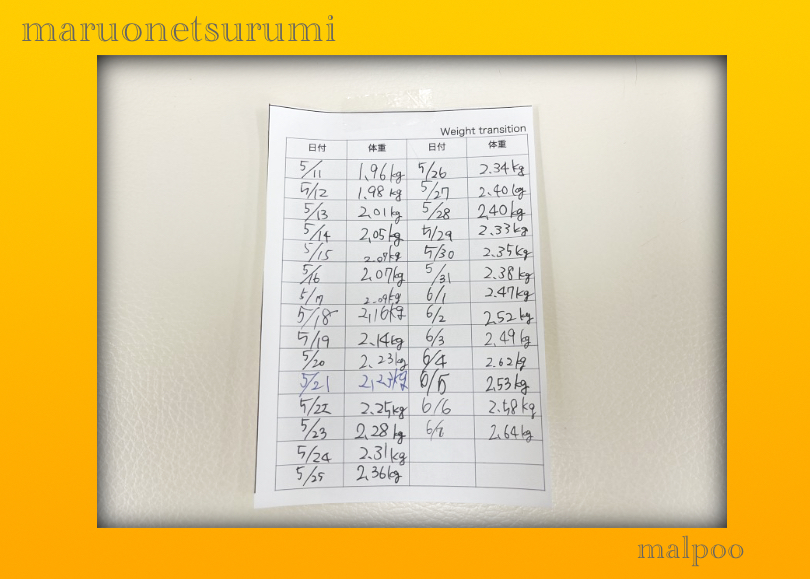 maruonetsurumi
Weight transition
日付 体重 日付 体重
5/11 1.96kg 5/26 2.34kg
5/12 1.98kg 5/27 2.40kg
5/13 2.01kg 5/28 2.40kg
5/14 2.05kg 5/29 2.33kg
5/15 5/30 2.35kg
5/16 2.07kg 5/31 2.38kg
5/17 2.09kg 6/1 2.47kg
5/18 2.16kg 6/2 2.52kg
5/19 2.14kg 6/3 2.49kg
5/20 2.23kg 6/4 2.62kg
5/21 2.23kg 6/5 2.53kg
5/22 2.25kg 6/6 2.58kg
5/23 2.28kg 2.64kg
5/24 2.31kg
5/25 2.36kg
malpoo